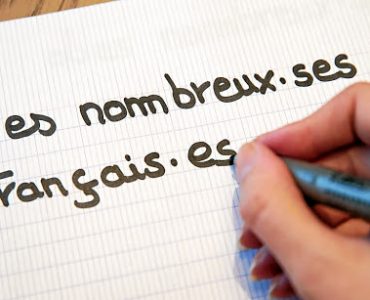 es nombreux·ses
français·es